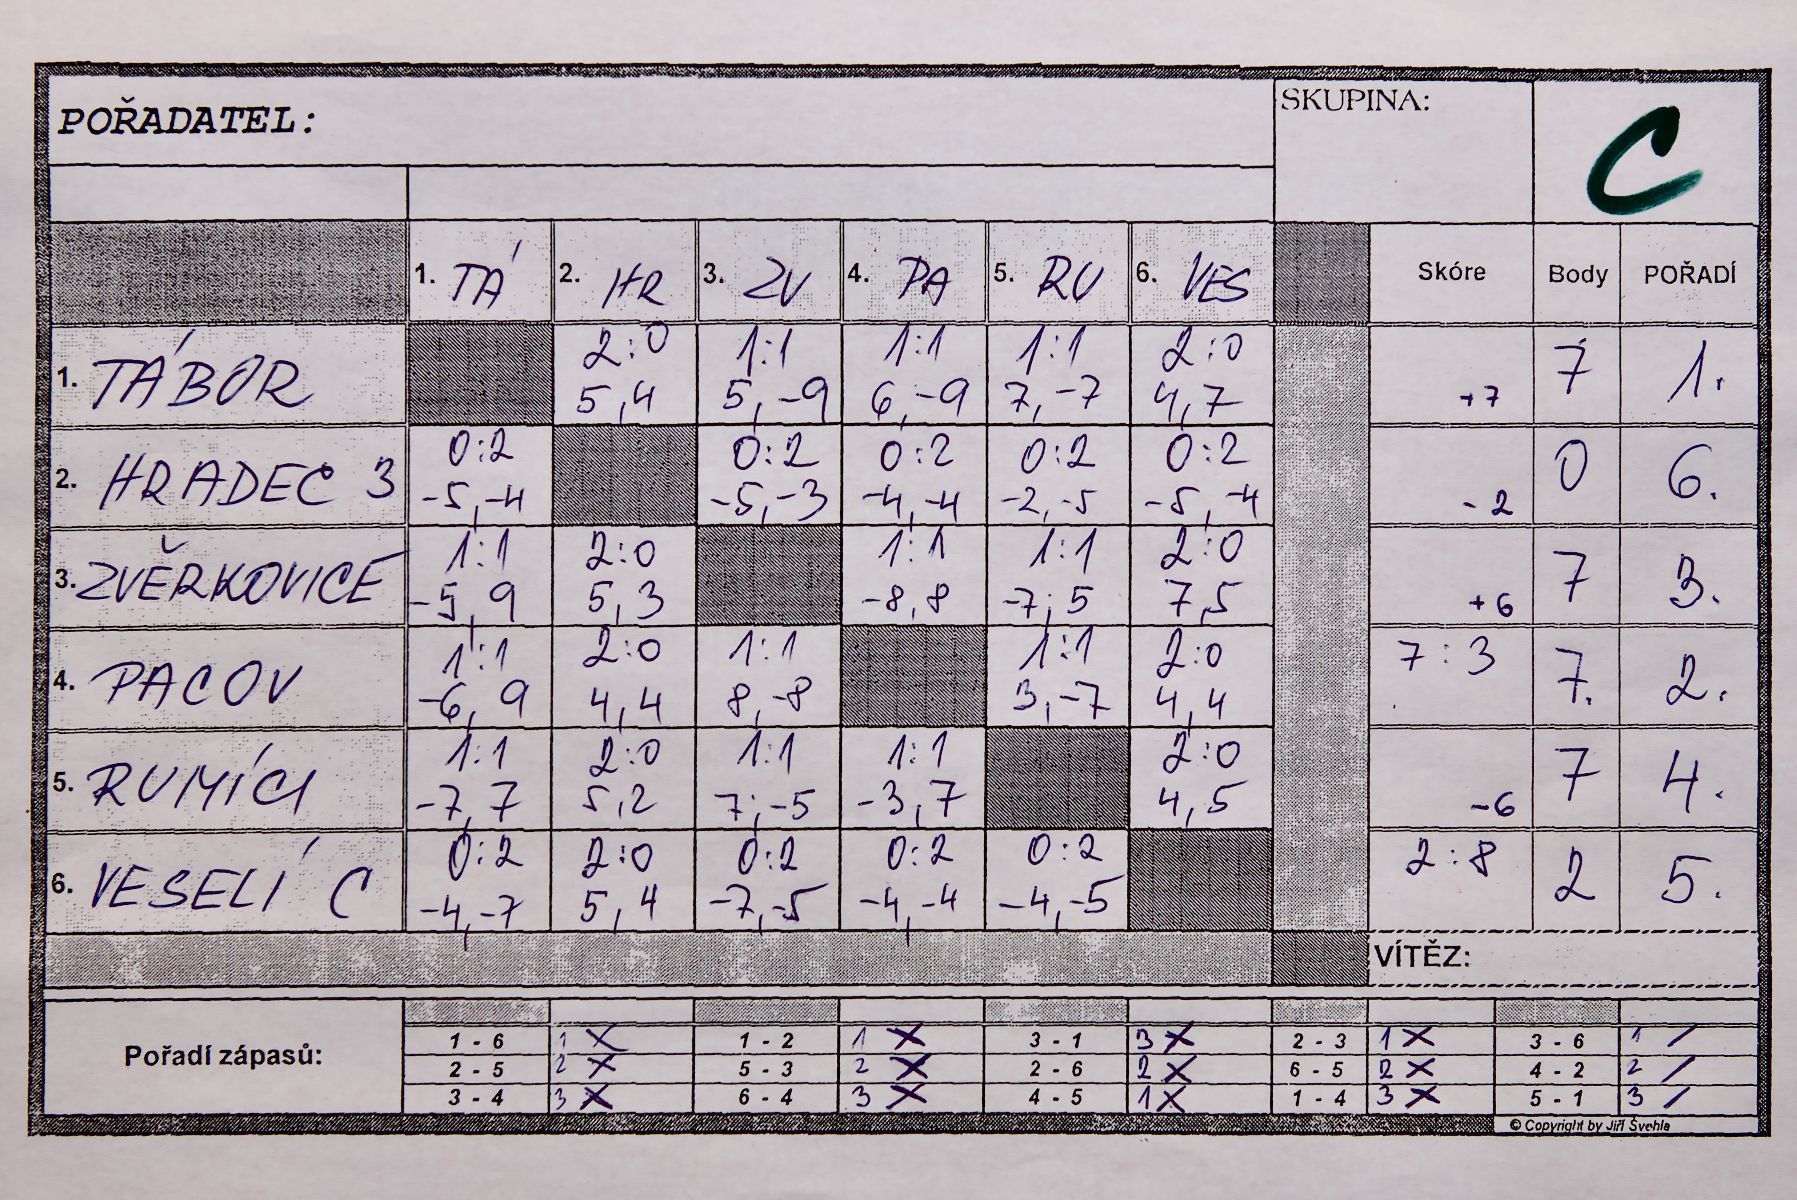 POŘADATEL:
SKUPINA:
C
1. TÁ 2. HR 3. ZV 4. PA 5. RU 6. VES Skóre Body POŘADÍ
1. TÁBOR 2:0 1:1 1:1 1:1 2:0 7 1.
5,4 5,-9 6,-9 7,-7 4,7 +7
2. HRADEC 3 0:2 0:2 0:2 0:2 0:2 0 6.
-5,-4 -5,-3 -4,-4 -2,-5 -5,-4 -2
3. ZVĚRKOVICE 1:1 2:0 1:1 1:1 2:0 7 3.
-5,9 5,3 -8,8 -7,5 7,5 +6
4. PACOV 1:1 2:0 1:1 1:1 2:0 7:3 7. 2.
-6,9 4,4 8,-8 3,-7 4,4
5. RUMÍCI 1:1 2:0 1:1 1:1 2:0 7 4.
-7,7 5,2 7,-5 -3,7 4,5 -6
6. VESELÍ C 0:2 2:0 0:2 0:2 0:2 2:8 2 5.
-4,-7 5,4 -7,-5 -4,-4 -4,-5
VÍTĚZ:
Pořadí zápasů:
1 - 6 1 X 1 - 2 1 X 3 - 1 3 X 2 - 3 1 X 3 - 6 1 /
2 - 5 2 X 5 - 3 2 X 2 - 6 2 X 6 - 5 2 X 4 - 2 2 /
3 - 4 3 X 6 - 4 3 X 4 - 5 1 X 1 - 4 3 X 5 - 1 3 /
© Copyright by Jiří Švehla